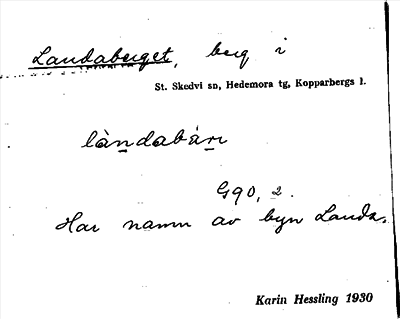 Landaberget, berg i
St. Skedvi sn, Hedemora tg, Kopparbergs l.
làndabàrı
G90, 2.
Har namn av byn Landa.
Karin Hessling 1930